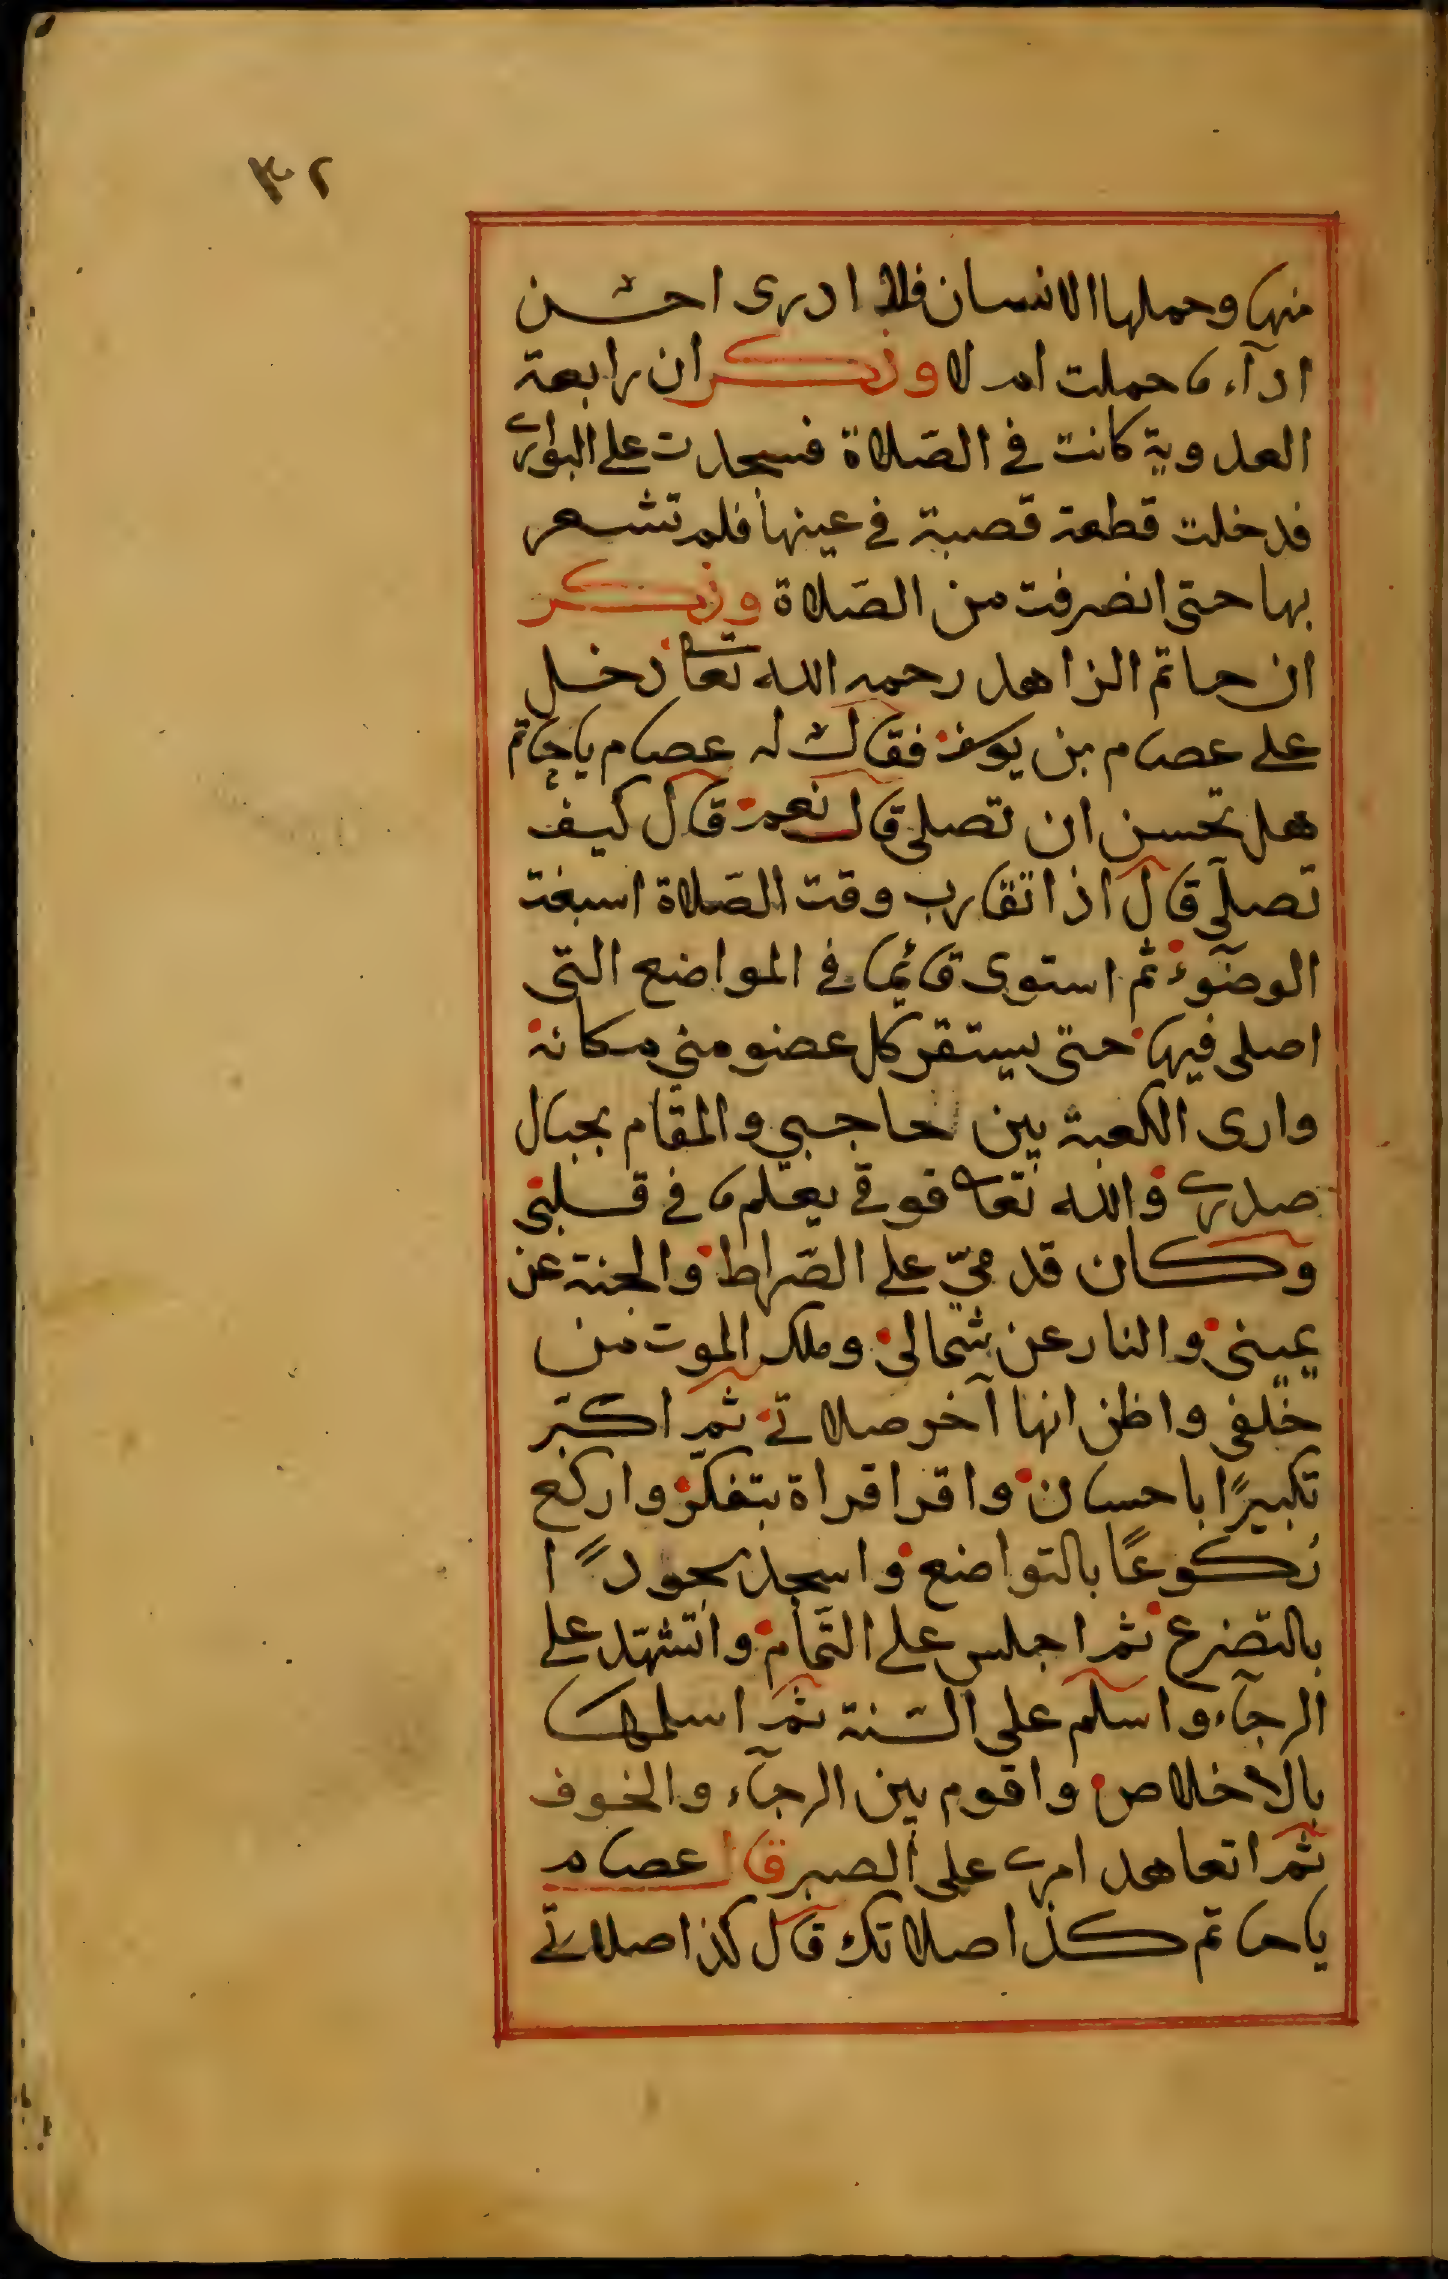 ٣٢
منها وحملها الانسان فلا ادرى احسن
ادآء ما حملت ام لا وذكر ان رابعة
العدوية كانت في الصّلاة فسجدت على البوارى
فدخلت قطعة قصبة في عينها فلم تشعر
بها حتى انصرفت من الصّلاة وذكر
ان حاتم الزاهد رحمه الله تعالى دخل
على عصام بن يوسف فقال له عصام يا حاتم
هل تحسن ان تصلى قال نعم قال كيف
تصلى قال اذا تقارب وقت الصّلاة اسبغت
الوضوء ثم استوى قائما في المواضع التى
اصلى فيها حتى يستقر كل عضو منى مكانه
وارى الكعبة بين حاجبي والمقام بحيال
صدرى والله تعالى فوقي يعلم ما في قلبى
وكان قدمىّ على الصّراط والجنة عن
يمينى والنار عن شمالى وملك الموت من
خلفى واظن انها آخر صلاتى ثم اكبّر
تكبيرًا باحسان واقرا قراة بتفكر واركع
ركوعًا بالتواضع واسجد سجودًا
بالتضرع ثم اجلس على التّمام واتشهّد على
الرجآء واسلم على السّنة ثم اسلمها
بالاخلاص واقوم بين الرجآء والخوف
ثم اتعاهد امرى على الصبر قال عصام
يا حاتم كذا صلاتك قال كذا صلاتى